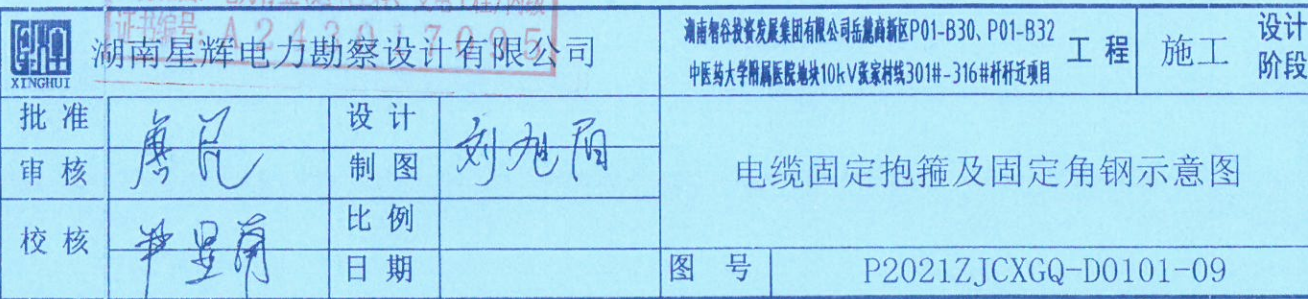 证书编号: A243017095
XINGHUI
湖南星辉电力勘察设计有限公司
湖南湘谷投资发展集团有限公司岳麓高新区P01-B30、P01-B32
中医药大学附属医院地块10kV张家村线301#-316#杆杆迁项目
工程
施工
设计
阶段
批准
设计
刘旭阳
审核
制图
电缆固定抱箍及固定角钢示意图
校核
比例
日期
图号
P2021ZJCXGQ-D0101-09